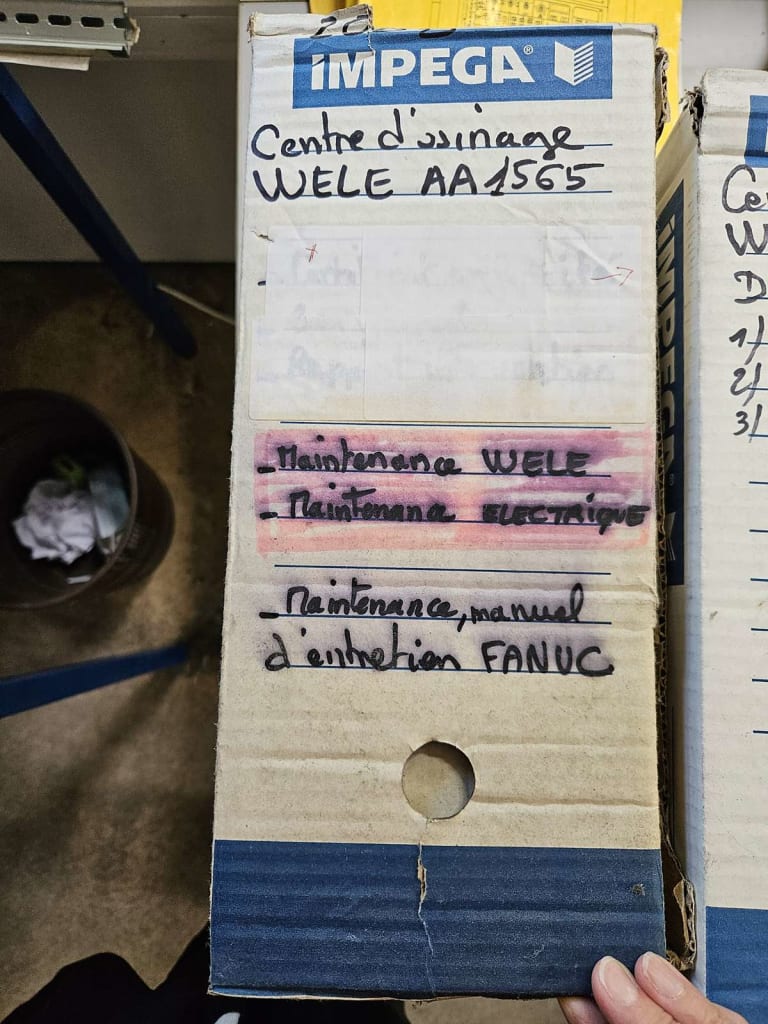 IMPEGA®
Centre d'usinage
WELE AA1565
- Maintenance WELE
- Maintenance ELECTRIQUE
- Maintenance, manuel
d'entretien FANUC
Ce
W
D
1/
2/
3/
IMPEGA